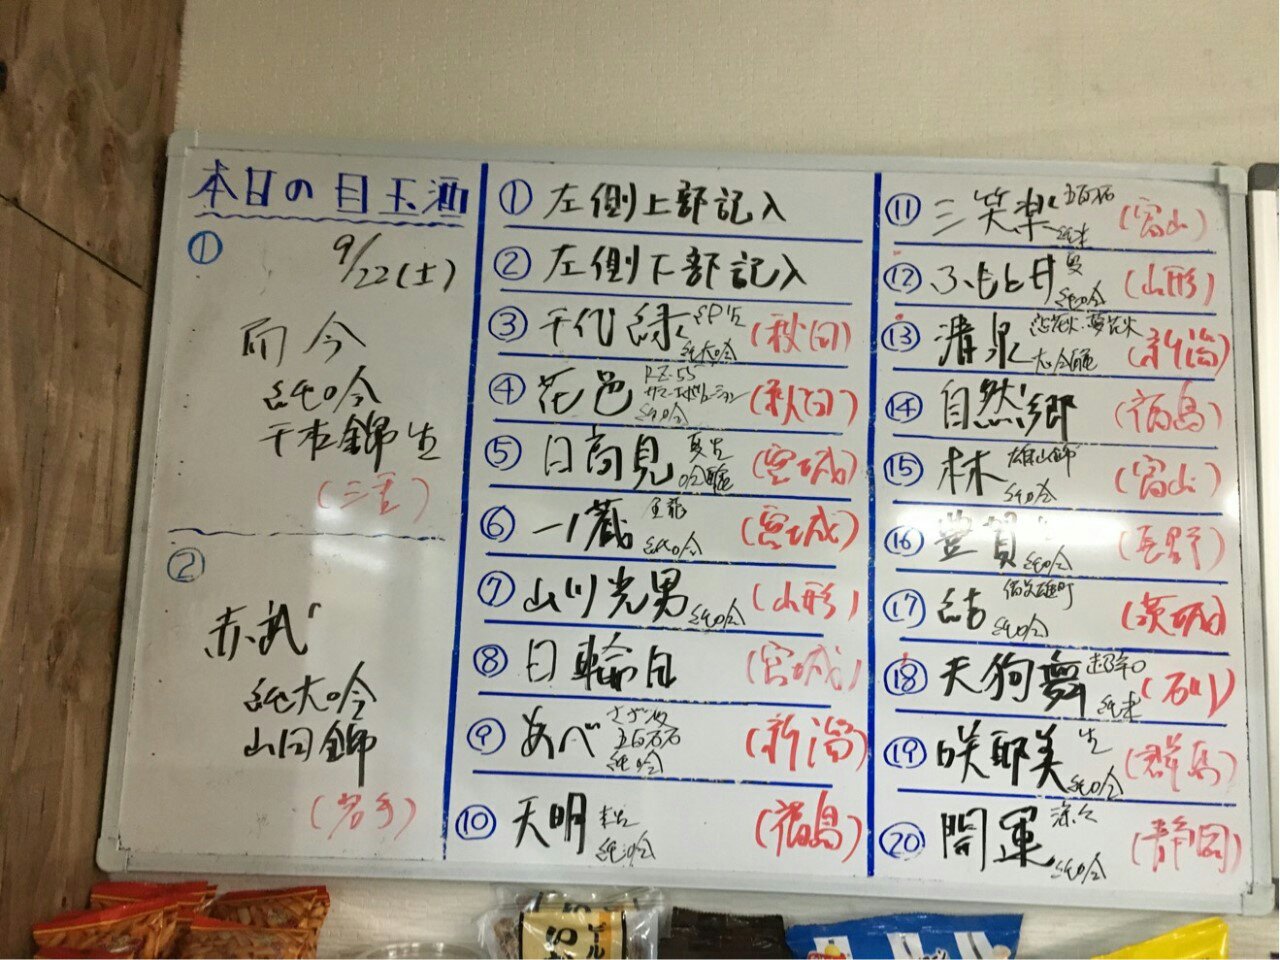 本日の目玉酒
① 9/22(土)
而今
純吟
千本錦生
(三重)
②
赤武
純大吟
山田錦
(岩手)
① 左側上部記入
② 左側下部記入
③ 千代緑 純大吟 (秋田)
④ 花邑 RZ55 純吟 (秋田)
⑤ 日高見 夏生 吟醸 (宮城)
⑥ 一ノ蔵 純吟 (宮城)
⑦ 山川光男 純吟 (山形)
⑧ 日輪田 (宮城)
⑨ あべ 五百万石 純吟 (新潟)
⑩ 天明 純吟 (福島)
⑪ 三笑楽 五百万石 純米 (富山)
⑫ ふもと井 夏 純吟 (山形)
⑬ 清泉 恋花火・夢花火 大吟醸 (新潟)
⑭ 自然郷 (福島)
⑮ 林 雄山錦 純吟 (富山)
⑯ 豊賀 純吟 (長野)
⑰ 結 純吟 (茨城)
⑱ 天狗舞 超辛口 純米 (石川)
⑲ 咲耶美 生 純吟 (群馬)
⑳ 開運 純吟 (静岡)